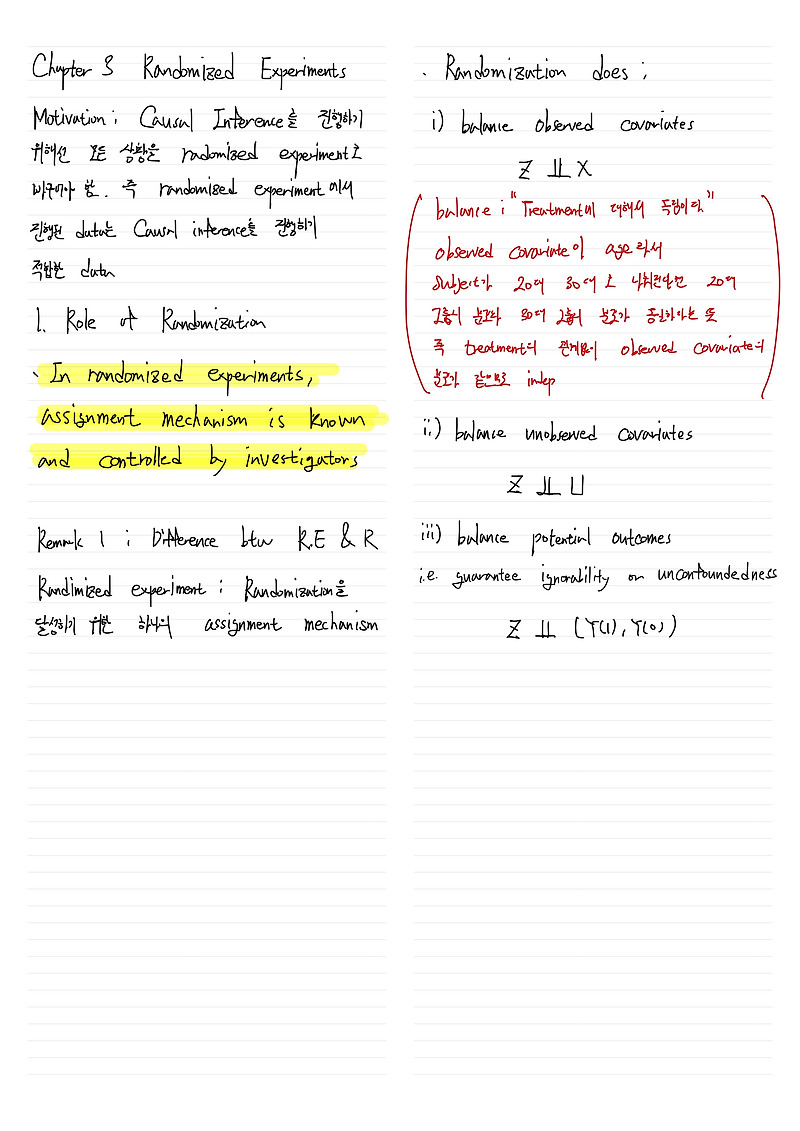 Chapter 3 Randomized Experiments
Motivation ; Causal Inference를 진행하기
위해선 모든 상황을 radomized experiment로
바꾸어야 함. 즉 randomized experiment에서
진행된 data는 Causal inference를 진행하기
적합한 data
1. Role of Randomization
· In randomized experiments,
assignment mechanism is known
and controlled by investigators
Remark 1 ; Difference btw R.E & R
Randimized experiment ; Randomization을
달성하기 위한 하나의 assignment mechanism
· Randomization does ;
i) balance observed covariates
Z ⫫ X
balance ; "Treatment에 대해서 독립이다."
observed covariate이 age라서
subject가 20대 30대로 나눠진다면 20대
그룹의 분포와 30대 그룹의 분포가 동일하다는 뜻
즉 treatment의 관계없이 observed covariate의
분포가 같으므로 indep
ii) balance unobserved covariates
Z ⫫ U
iii) balance potential outcomes
i.e. guarantee ignorability or unconfoundedness
Z ⫫ (Y(1), Y(0))